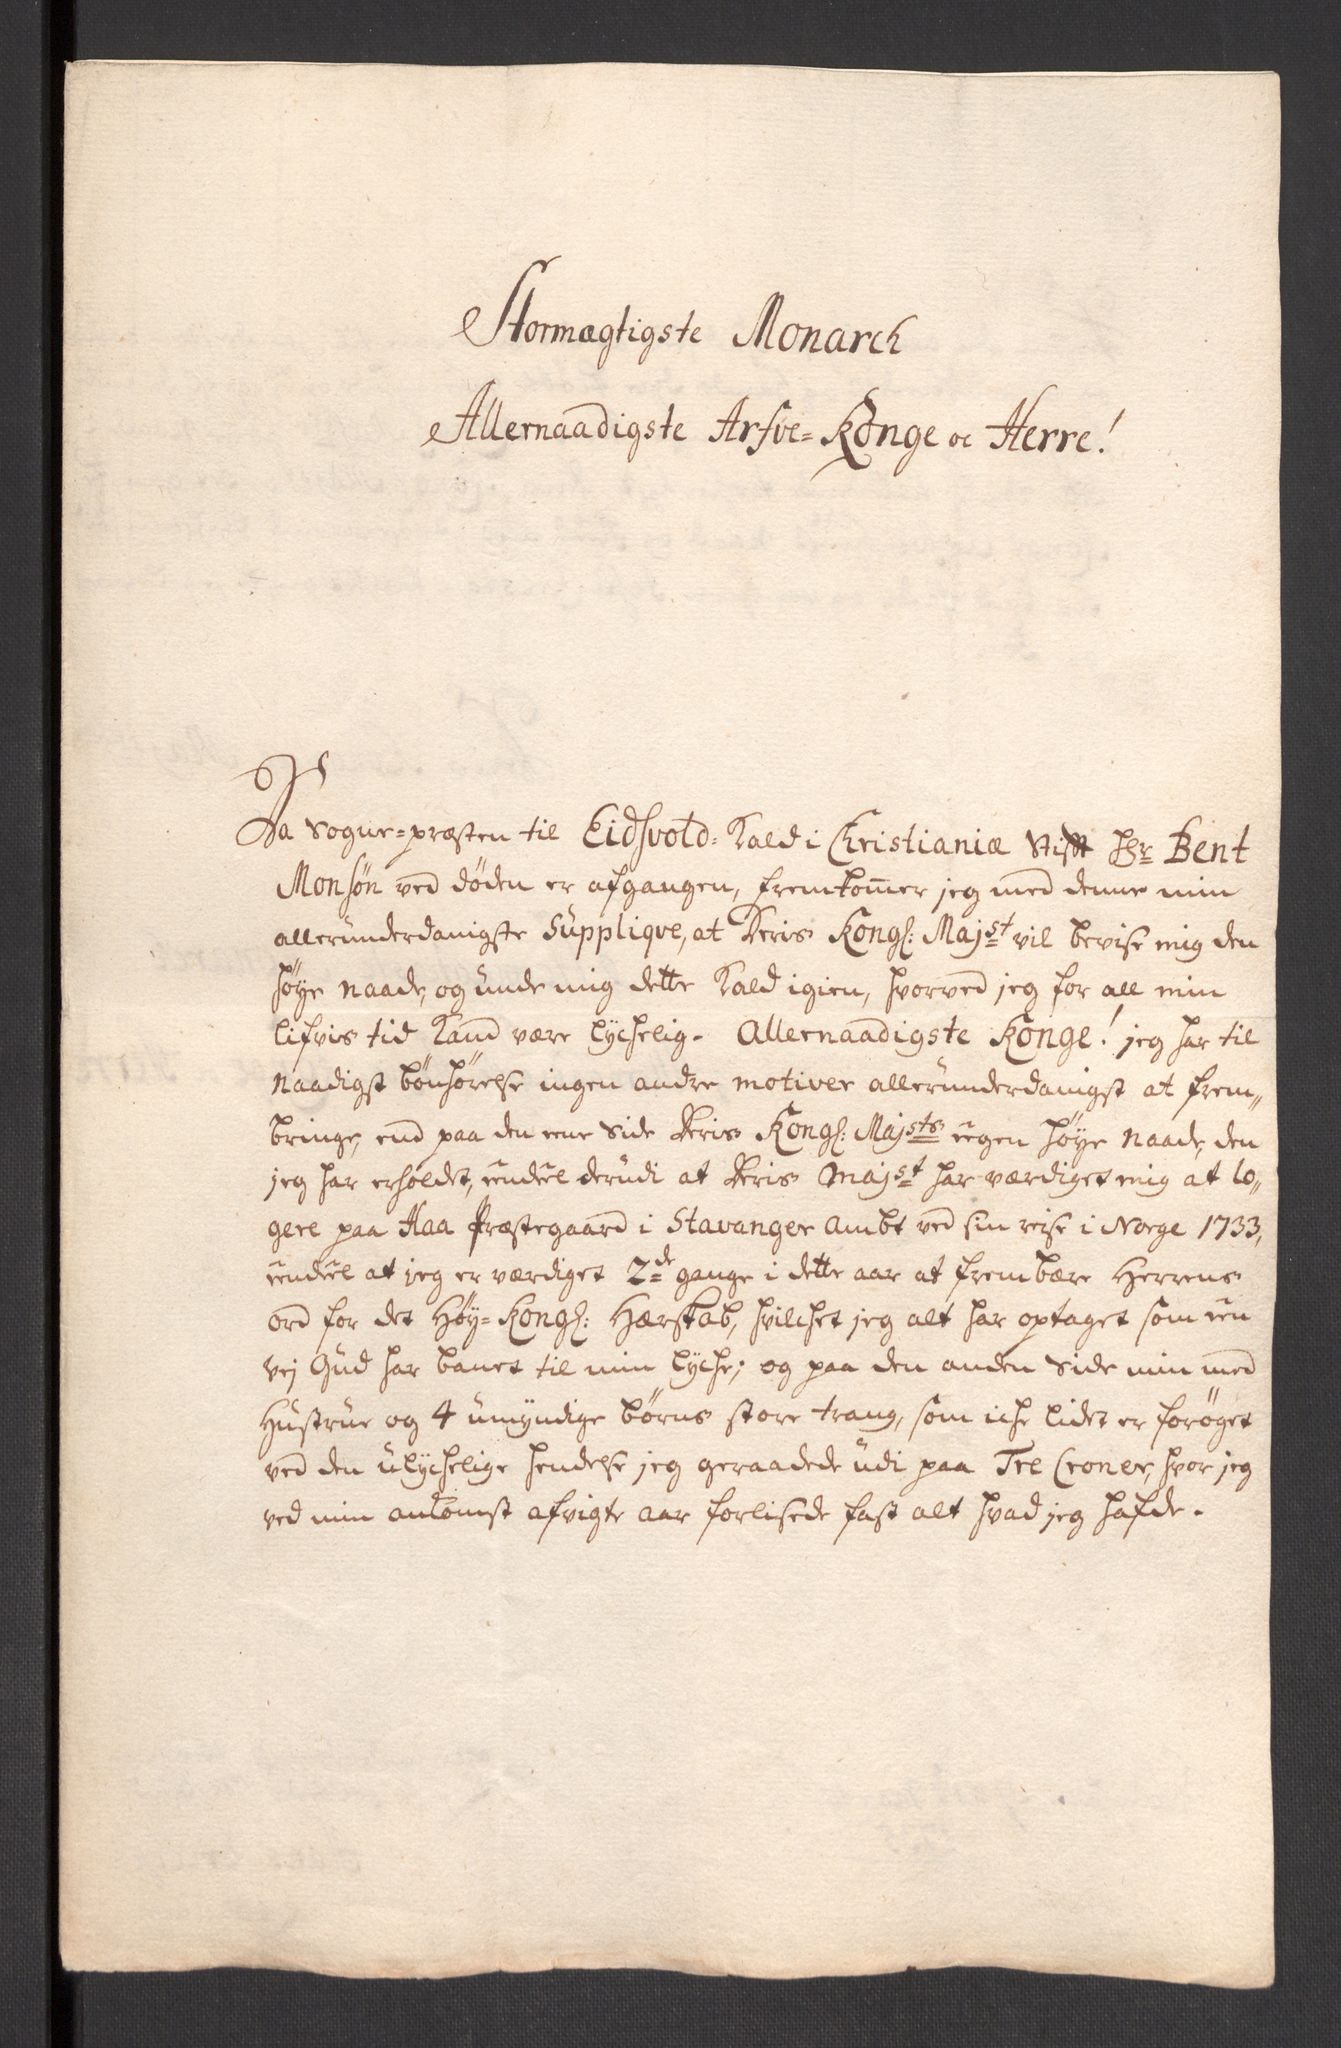 Stormægtigste Monarch
Allernaadigste Arfve-Konge oc Herre!
Da Sogne-præsten til Eidsvold-Kald i Christianiæ Stifft Hr Bent
Monsøn ved døden er afgangen, fremkom̅er jeg med denne min
allerunderdanigste Supplique, at Deris Kongl: Majst vil bevise mig den
høye naade, og unde mig dette Kald igien, hvorved jeg for all min
lifvis tid Kand være lychelig. Allernaadigste Konge! jeg har til
naadigst bønhørelse ingen andre motiver allerunderdanigst at frem„
bringe, end paa den eene Side Deris Kongl: Majsts egen høye naade, den
jeg har erholdet, eendeel derudi at Deris Majst har værdiget mig at lo„
gere paa Haa Præstegaard i Stavanger Ambt ved sin reise i Norge 1733,
eendeel at jeg er værdiget 2de gange i dette aar at frembære Herrens
ord for det Høy-Kongl: Herskab, hvilchet jeg alt har optaget som een
vej Gud har banet til min lyche; og paa den anden Side min med
Hustrue og 4 umyndige børns store trang, som iche lidet er forøget
ved den ulychelige hendelse jeg geraadede udi paa Tre Croner, hvor jeg
ved min ankomst afvigte aar forlisede fast alt hvad jeg hafde.